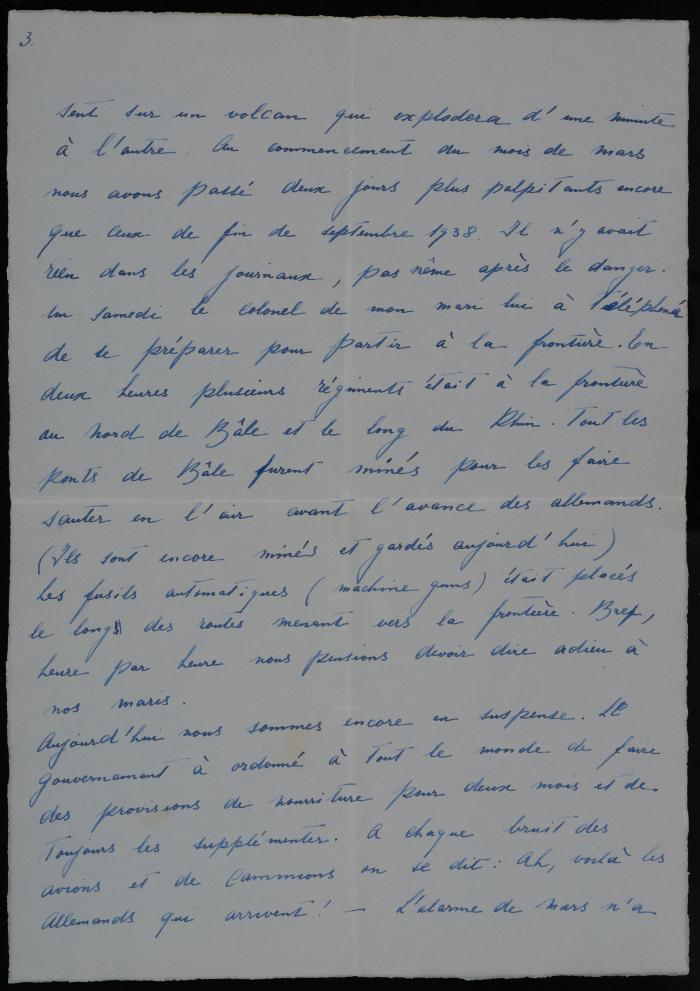 3.
sent sur un volcan qui explodera d'une minute
à l'autre. Au commencement du mois de mars
nous avons passé deux jours plus palpitants encore
que ceux de fin de septembre 1938. Il n'y avait
rien dans les journaux, pas même après le danger.
Un samedi le colonel de mon mari lui à téléphoné
de se préparer pour partir à la frontière. En
deux heures plusieurs régiments était à la frontière
au nord de Bâle et le long du Rhin. Tout les
ponts de Bâle furent minés pour les faire
sauter en l'air avant l'avance des allemands.
(Ils sont encore minés et gardés aujourd'hui)
Les fusils automatiques (machine guns) était placés
le long des routes menant vers la frontière. Bref,
heure par heure nous pensions devoir dire adieu à
nos maris.
Aujourd'hui nous sommes encore en suspense. Le
gouvernement à ordonné à tout le monde de faire
des provisions de nourriture pour deux mois et de
toujours les supplémenter. A chaque bruit des
avions et de Cammions on se dit: Ah, voilà les
Allemands qui arrivent! — L'alarme de mars n'a